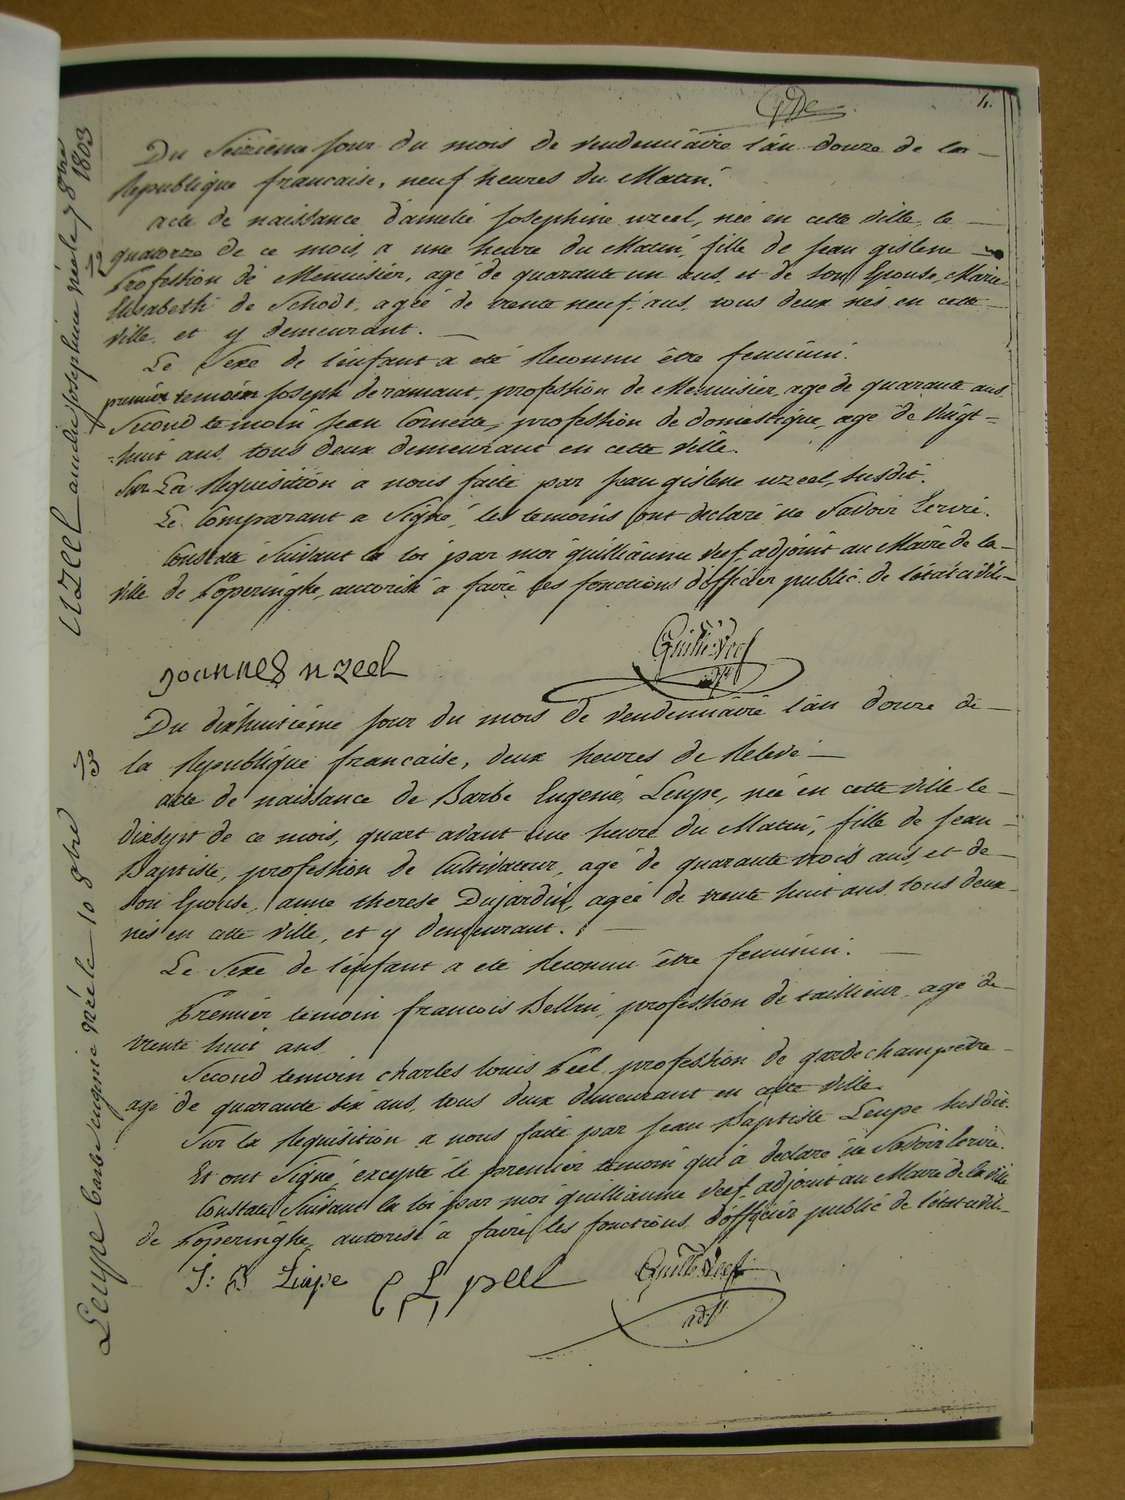 4.
Du Seizieme jour du mois de vendemiaire l'an douze de la
Republique francaise, neuf heures du Matin.
acte de naissance d'amelie Josephine uzeel, née en cette ville, le
quatorze de ce mois, a une heure du Matin, fille de Jean gislene
Profession de Menuisier, agé de quarante un ans, et de son Epouse, Marie
Elisabeth de Schodt, agée de trente neuf ans, tous deux nés en cette
ville, et y demeurant.
Le Sexe de l'enfant a eté Reconnu être feminin.
premier temoin Joseph deramaut, profession de Menuisier, age de quarante ans
Second temoin Jean Cornette, profession de domestique, age de vingt=
=huit ans, tous deux demeurant en cette ville.
Sur La Requisition a nous faite par Jean gislene uzeel, Susdit.
Le Comparant a Signé, les temoins ont declaré ne Savoir Ecrire.
Constaté Suivant la loi par moi guilliaume Veef adjoint au Maire de la
ville de Poperinghe, autorisé a faire les fonctions d'officier public de l'état civil
Joannes uzeel
Guill: Veef
adjt
UZeel amelie Josephine née le 7 8bre 1803
N 2
Du dixhuitieme jour du mois de vendemiaire l'an douze de
la Republique francaise, deux heures de Relevé
acte de naissance de Barbe Eugenie Leupe, née en cette ville le
dixsept de ce mois, quart avant une heure du Matin, fille de Jean
Baptiste, profession de Cultivateur, agé de quarante trois ans, et de
son Epouse, anne therese Dujardin, agée de trente huit ans, tous deux
nés en cette ville, et y demeurant.
Le Sexe de l'enfant a eté Reconnu être feminin.
Premier temoin francois Bellin, profession de taillieur, agé de
trente huit ans
Second temoin charles louis Peel, profession de garde champetre
agé de quarante six ans, tous deux demeurant en cette ville.
Sur la Requisition a nous faite par Jean Baptiste Leupe Susdit.
Et ont Signé, excepté le premier temoin qui à declaré ne Savoir Ecrire.
Constaté Suivant la loi par moi guilliaume Veef adjoint au Maire de la ville
de Poperinghe, autorisé à faire les fonctions d'officier public de l'état civil
J: B Leupe
C L peel
Guill: Veef
adjt
Leupe barbe eugenie née le 10 8bre
N 3